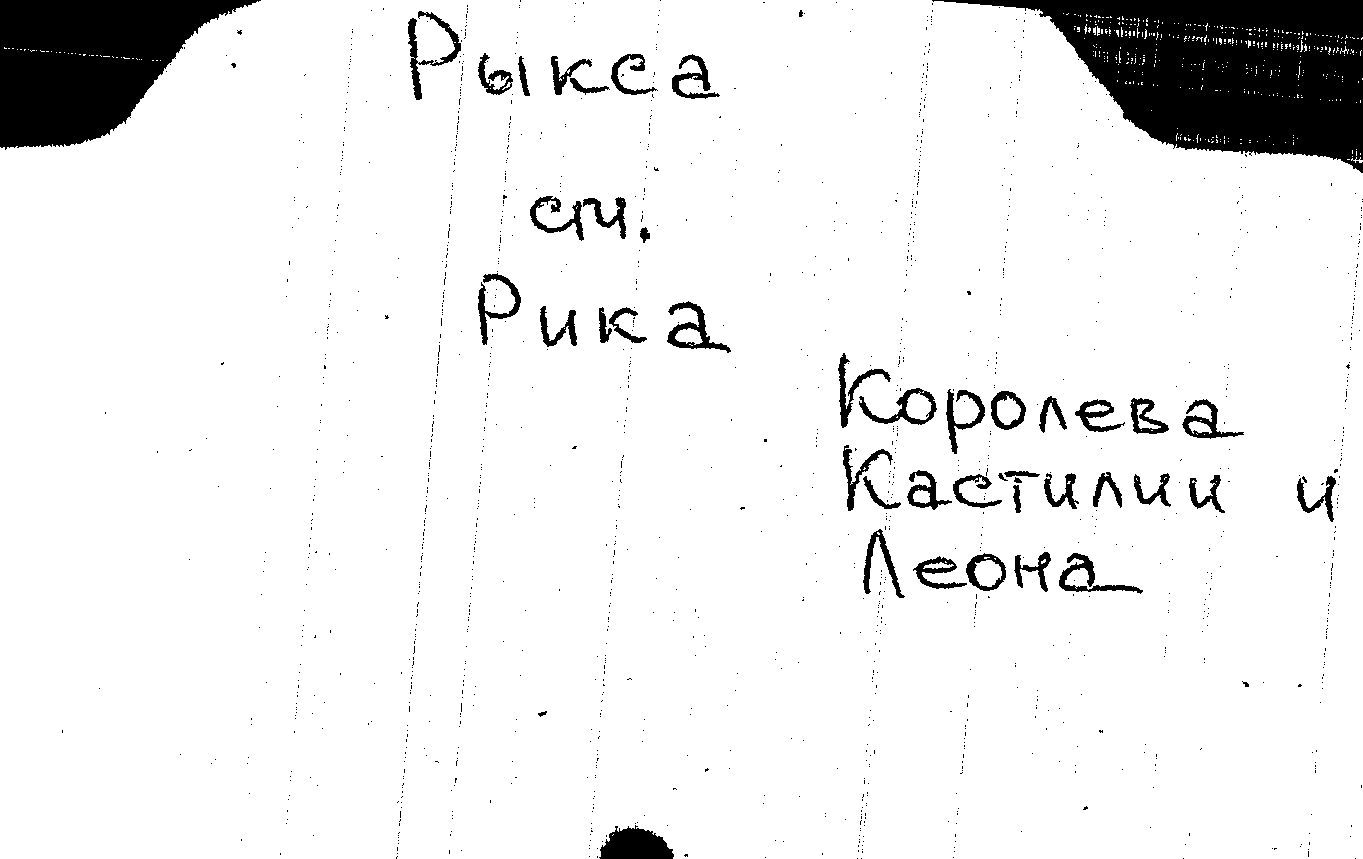 Рыкса
см.
Рика
Королева
Кастилии и
Леона